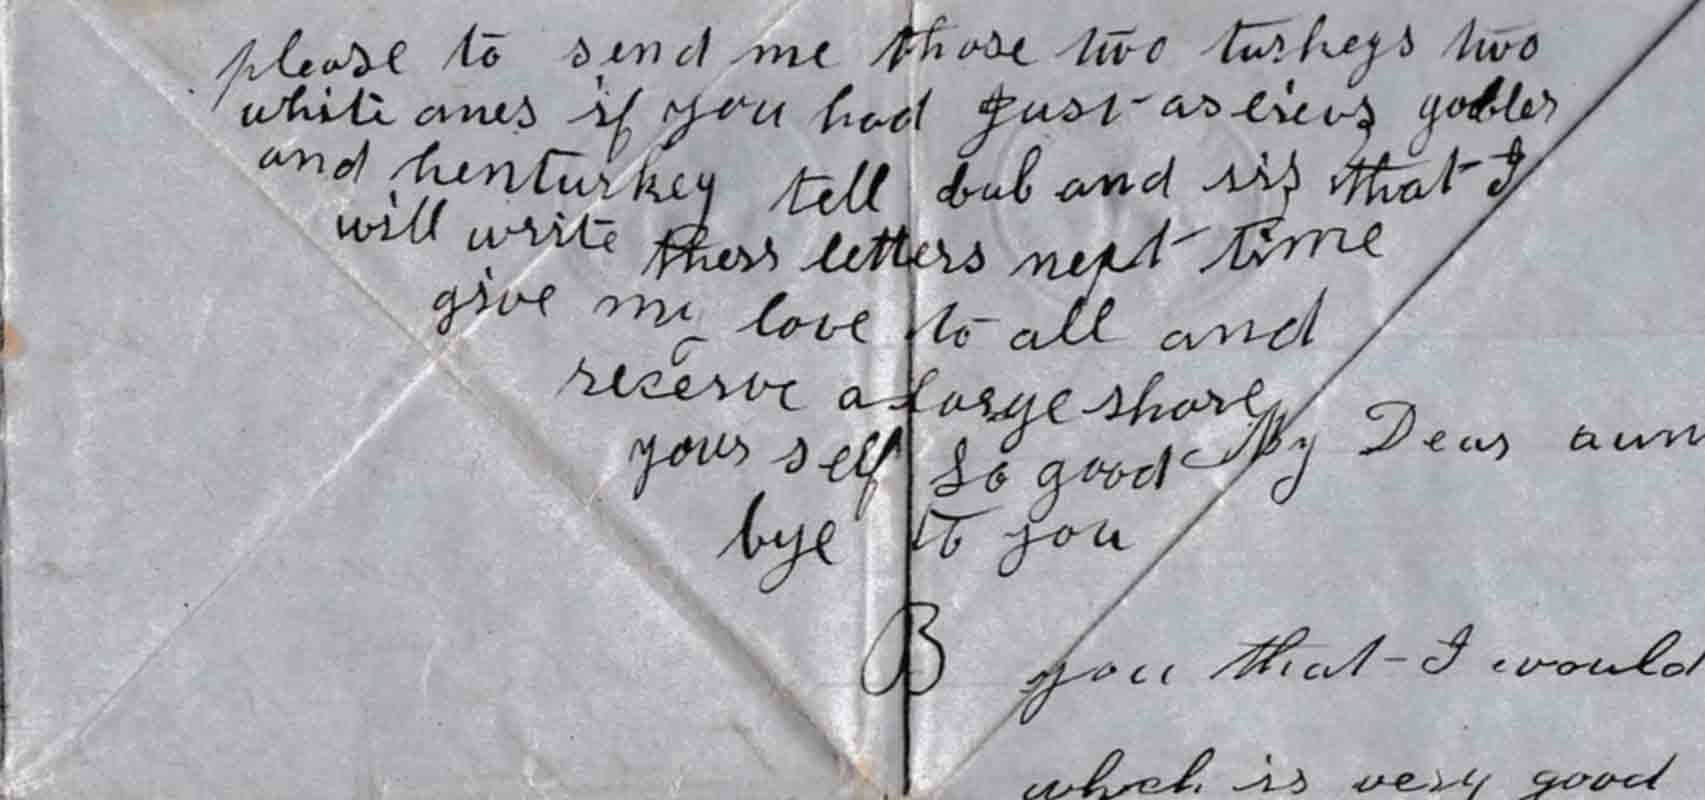 please to send me those two turkeys two
white ones if you had just as lieves gobler
and henturkey tell bub and sis that I
will write thers letters next time
give my love to all and
reserve a large share
your self so good
bye to you
B
My Dear aun
you that I would
which is very good